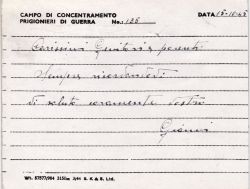 CAMPO DI CONCENTRAMENTO DATA 15-10-45
PRIGIONIERI DI GUERRA No.: 126
Carissimi Genitori e parenti
Sempre ricordandovi
di saluto caramente vostro
Gianni
Wt. 57577/904 315m 3/44 B. K & B. Ltd.